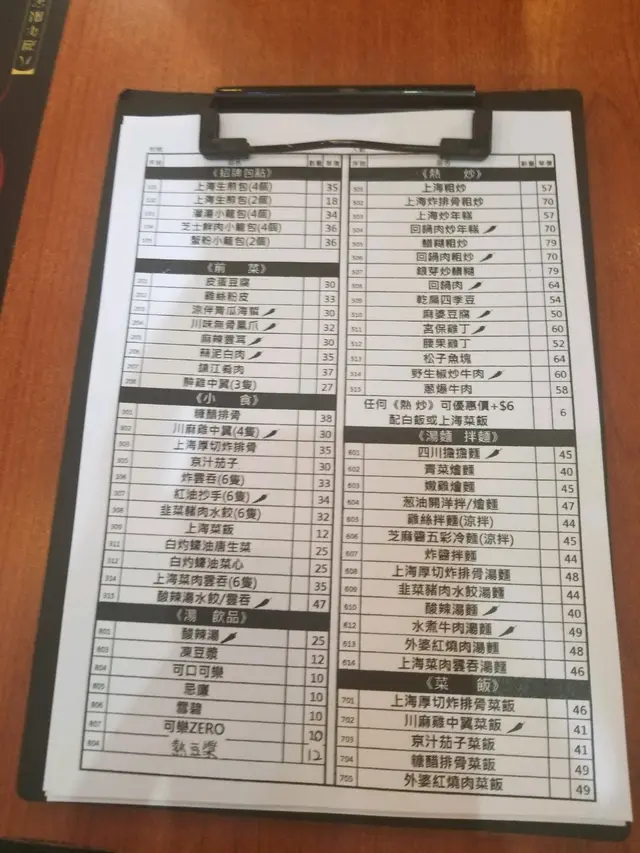 《招牌包點》
101 上海生煎包(4個) 35
102 上海生煎包(2個) 18
103 灌湯小籠包(4個) 34
104 芝士鮮肉小籠包(4個) 36
105 蟹粉小籠包(2個) 36
《前 菜》
201 皮蛋豆腐 30
202 雞絲粉皮 33
203 涼伴青瓜海蜇 30
204 川味無骨鳳爪 32
205 麻辣雲耳 30
206 蒜泥白肉 35
207 鎮江肴肉 37
208 醉雞中翼(3隻) 27
《小 食》
301 糖醋排骨 38
302 川麻雞中翼(4隻) 30
303 上海厚切炸排骨 35
305 京汁茄子 30
306 炸雲吞(6隻) 33
307 紅油抄手(6隻) 34
308 韭菜豬肉水餃(6隻) 32
309 上海菜飯 12
311 白灼蠔油唐生菜 25
312 白灼蠔油菜心 25
314 上海菜肉雲吞(6隻) 35
315 酸辣湯水餃/雲吞 47
《湯 飲品》
801 酸辣湯 25
803 凍豆漿 12
804 可口可樂 10
805 忌廉 10
806 雪碧 10
807 可樂ZERO 10
804 熱豆漿 12
《熱 炒》
501 上海粗炒 57
502 上海炸排骨粗炒 70
503 上海炒年糕 57
504 回鍋肉炒年糕 70
505 鱔糊粗炒 79
506 回鍋肉粗炒 70
507 銀芽炒鱔糊 79
508 回鍋肉 64
509 乾扁四季豆 54
510 麻婆豆腐 50
511 宮保雞丁 60
512 腰果雞丁 52
513 松子魚塊 64
514 野生椒炒牛肉 60
515 蔥爆牛肉 58
任何《熱 炒》可優惠價+$6 6
配白飯或上海菜飯
《湯麵 拌麵》
601 四川擔擔麵 45
602 青菜燴麵 40
603 嫩雞燴麵 45
604 葱油開洋拌/燴麵 47
605 雞絲拌麵(涼拌) 44
606 芝麻醬五彩冷麵(涼拌) 45
607 炸醬拌麵 44
608 上海厚切炸排骨湯麵 48
609 韭菜豬肉水餃湯麵 44
610 酸辣湯麵 40
612 水煮牛肉湯麵 49
613 外婆紅燒肉湯麵 48
614 上海菜肉雲吞湯麵 46
《菜 飯》
701 上海厚切炸排骨菜飯 46
702 川麻雞中翼菜飯 41
703 京汁茄子菜飯 41
704 糖醋排骨菜飯 49
705 外婆紅燒肉菜飯 49